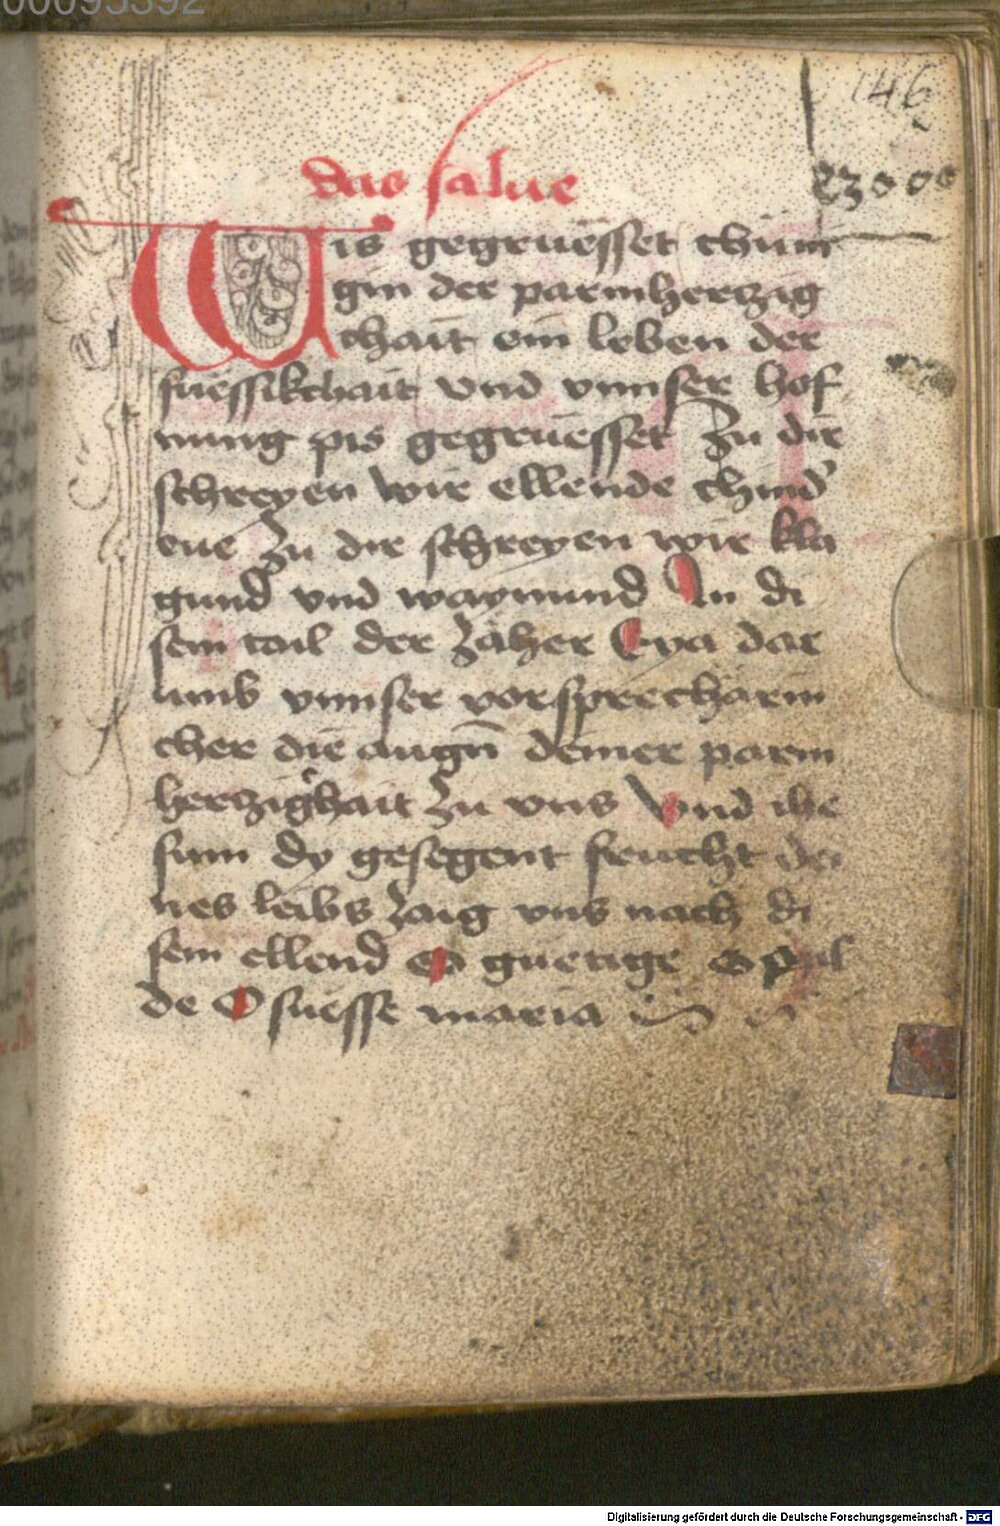 00095592
146
23000
das salue
Wis gegruesset chüni
gin der parmherczig
chait ein leben der
suessikchait vnd vnnser hof
nung pis gegruesset Zu dir
schreyen wir ellende chind
eue Zu dir schreyen wir kla
gund vnd waynund In di
sem tail der Zäher Eya dar
umb vnnser vorsprecharin
cher die augn̄ deiner parm
herczigkhait Zu vns Vnd ihe
sum dy gesegent frucht dei
nes leibs Zaig vns nach di
sem ellend O guetige O mil
de O suesse maria
Digitalisierung gefördert durch die Deutsche Forschungsgemeinschaft - DFG